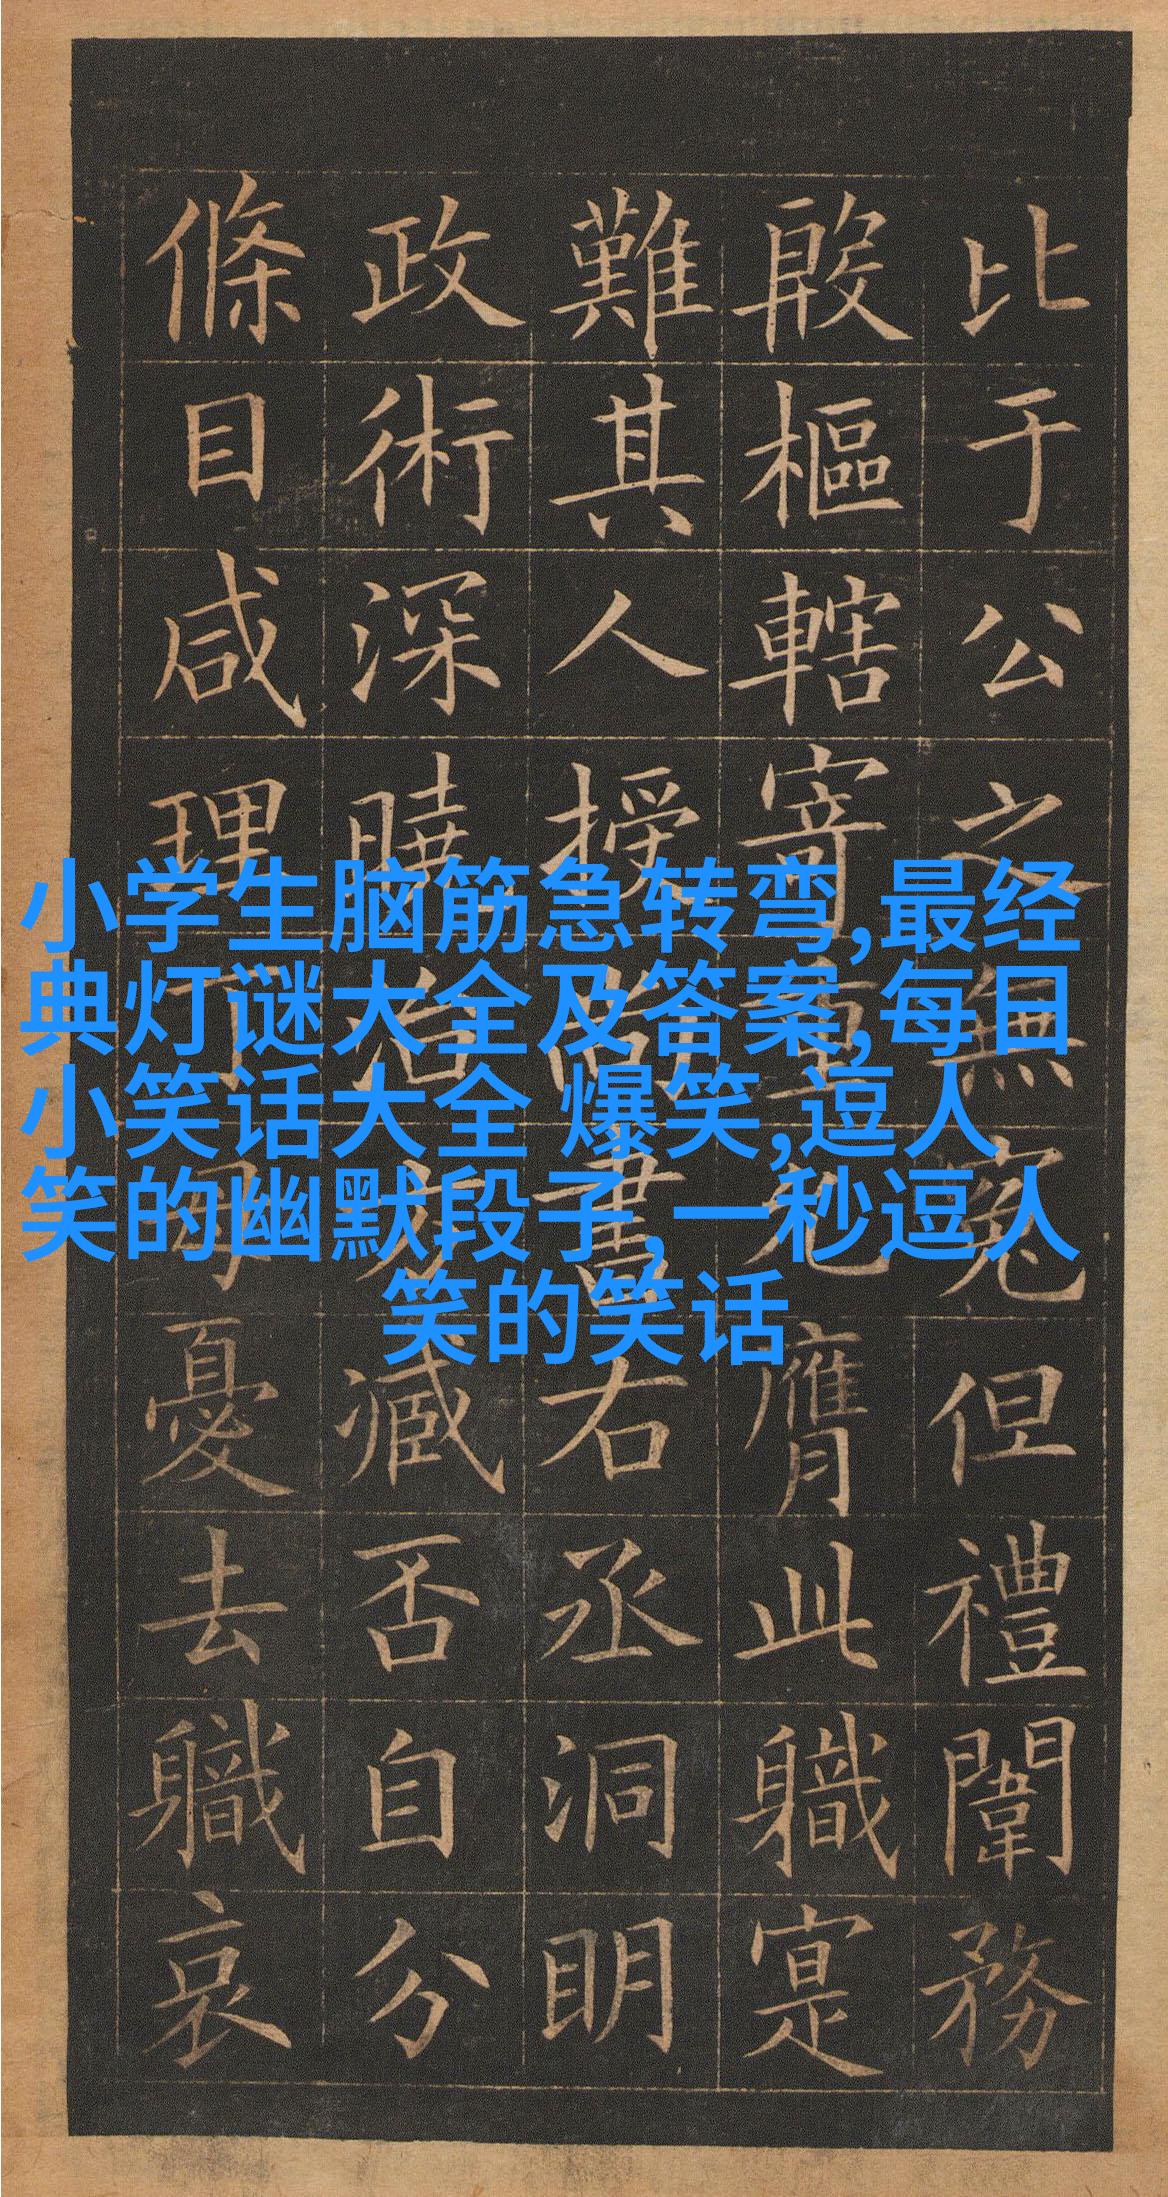 比于公之無冤但禮闈務
殷樞轄寄重允膺此職寔
難其人授尚書右丞洞明
政術深曉治方臧否自分
條目咸理丁母憂去職哀
小学生脑筋急转弯,最经
典灯谜大全及答案,每日
小笑话大全 爆笑,逗人
笑的幽默段子,一秒逗人
笑的笑话